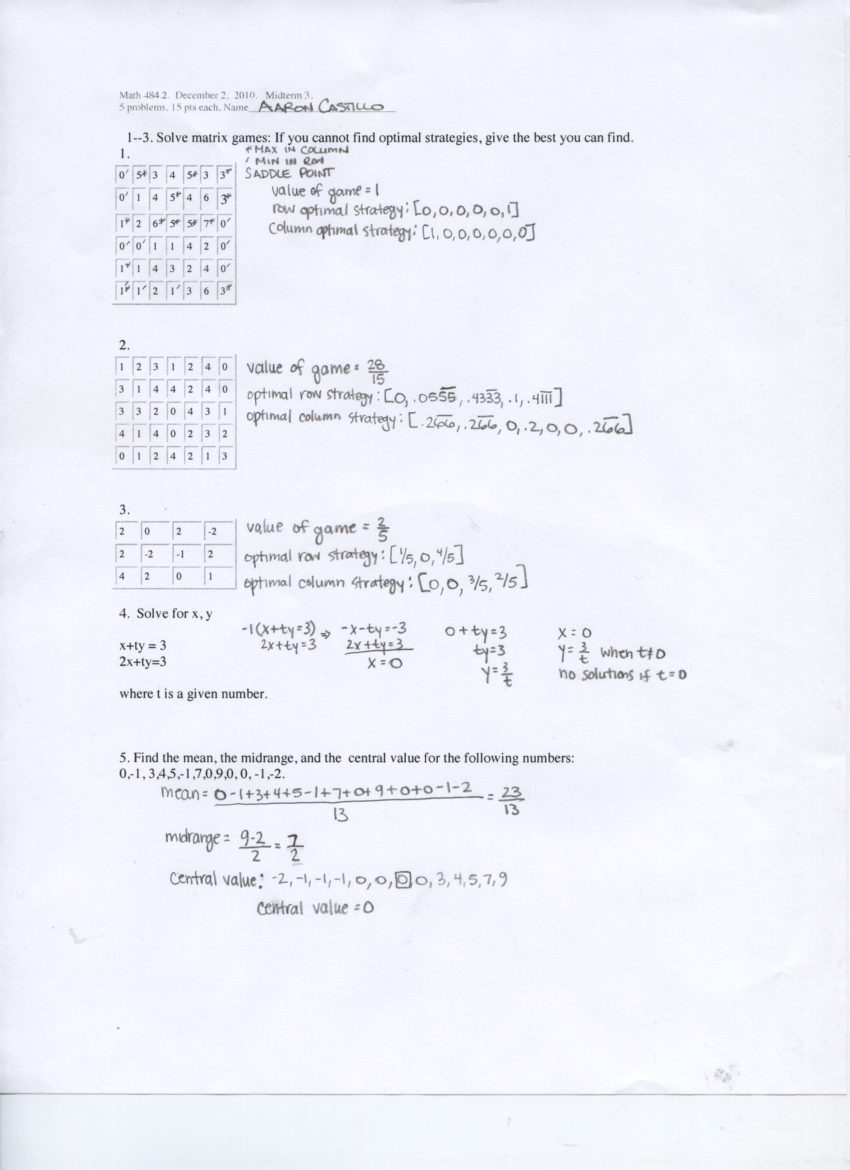 Math 484.2. December 2, 2010. Midterm 3.
5 problems, 15 pts each. Name AARON CASTILLO
1--3. Solve matrix games: If you cannot find optimal strategies, give the best you can find.
1.
* MAX IN COLUMN
' MIN IN ROW
SADDLE POINT
0' 5* 3 4 5* 3 3*
0' 1 4 5* 4 6 3*
1* 2 6* 5* 5* 7* 0'
0' 0' 1 1 4 2 0'
1* 1 4 3 2 4 0'
1*' 1' 2 1' 3 6 3*
value of game = 1
row optimal strategy: [0, 0, 0, 0, 0, 1]
column optimal strategy: [1, 0, 0, 0, 0, 0, 0]
2.
1 2 3 1 2 4 0
3 1 4 4 2 4 0
3 3 2 0 4 3 1
4 1 4 0 2 3 2
0 1 2 4 2 1 3
value of game = 28/15
optimal row strategy: [0, .0555, .4333, .1, .4111]
optimal column strategy: [.266, .266, 0, .2, 0, 0, .266]
3.
2 0 2 -2
2 -2 -1 2
4 2 0 1
value of game = 2/5
optimal row strategy: [1/5, 0, 4/5]
optimal column strategy: [0, 0, 3/5, 2/5]
4. Solve for x, y
x+ty = 3
2x+ty=3
where t is a given number.
-1(x+ty=3) ⇒ -x-ty=-3
2x+ty=3 2x+ty=3
x=0
0+ty=3
ty=3
y=3/t
x=0
y=3/t when t≠0
no solutions if t=0
5. Find the mean, the midrange, and the central value for the following numbers:
0,-1, 3,4,5,-1,7,0,9,0, 0, -1,-2.
mean = 0-1+3+4+5-1+7+0+9+0+0-1-2/13 = 23/13
midrange = 9-2/2 = 7/2
central value: -2,-1,-1,-1,0,0,0,0,3,4,5,7,9
central value = 0